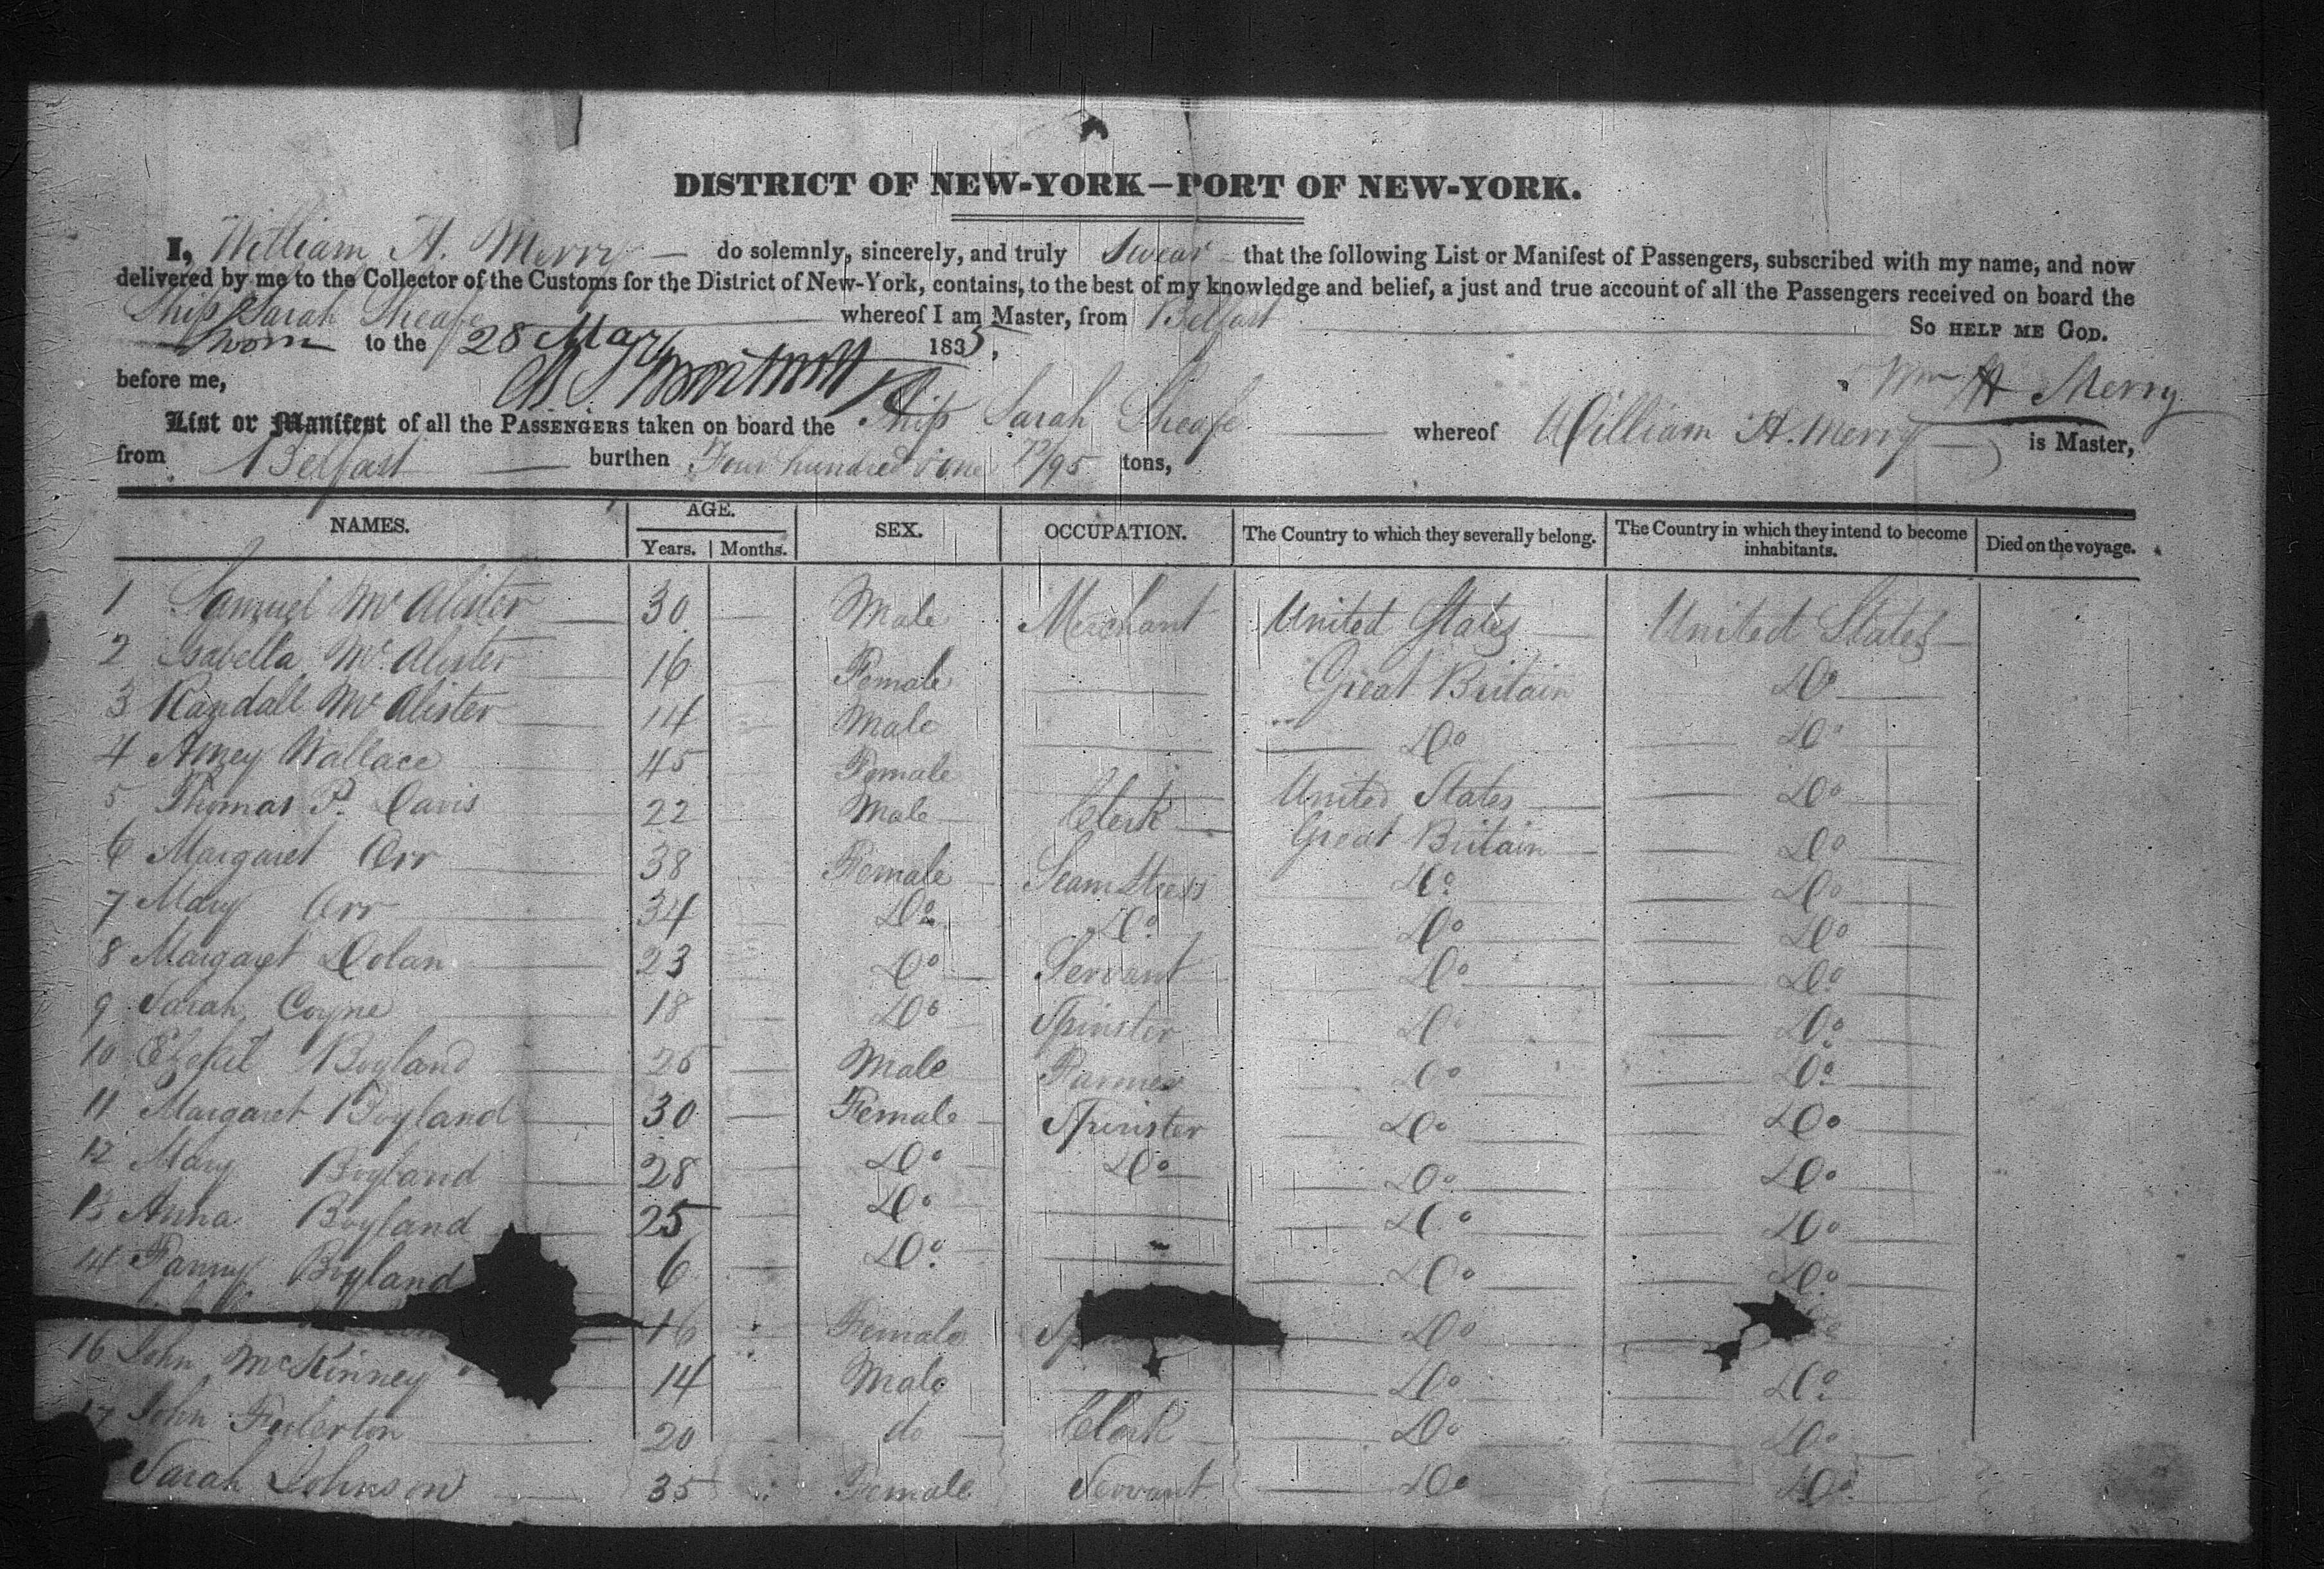 DISTRICT OF NEW-YORK—PORT OF NEW-YORK.
I, William H. Merry — do solemnly, sincerely, and truly Swear — that the following List or Manifest of Passengers, subscribed with my name, and now
delivered by me to the Collector of the Customs for the District of New-York, contains, to the best of my knowledge and belief, a just and true account of all the Passengers received on board the
Ship Sarah Sheafe whereof I am Master, from Belfast So HELP ME GOD.
Sworn to the 28 May 1835,
before me, Wm H Merry
List or Manifest of all the PASSENGERS taken on board the Ship Sarah Sheafe — whereof William H. Merry is Master,
from Belfast — burthen Four hundred & one 73/95 tons,
NAMES. AGE. Years. Months. SEX. OCCUPATION. The Country to which they severally belong. The Country in which they intend to become inhabitants. Died on the voyage.
1 Samuel Mc Alister 30 Male Merchant United States United States
2 Isabella Mc Alister 16 Female Great Britain Do
3 Randall Mc Alister 14 Male Do Do
4 Anzey Wallace 45 Female United States Do
5 Thomas P. Davis 22 Male Clerk Great Britain Do
6 Margaret Orr 38 Female Seamstress Do Do
7 Mary Orr 34 Do Do Do Do
8 Margaret Dolan 23 Do Servant Do Do
9 Sarah Coyne 18 Do Spinster Do Do
10 Ezekil Boyland 25 Male Farmer Do Do
11 Margaret Boyland 30 Female Spinster Do Do
12 Mary Boyland 28 Do Do Do Do
13 Anna Boyland 25 Do Do Do
14 Fanny Boyland 6 Do Do Do
16 Female Do
16 John McKinney 14 Male Do Do
17 John Fullerton 20 do Clerk Do Do
Sarah Johnson 35 Female Servant Do Do